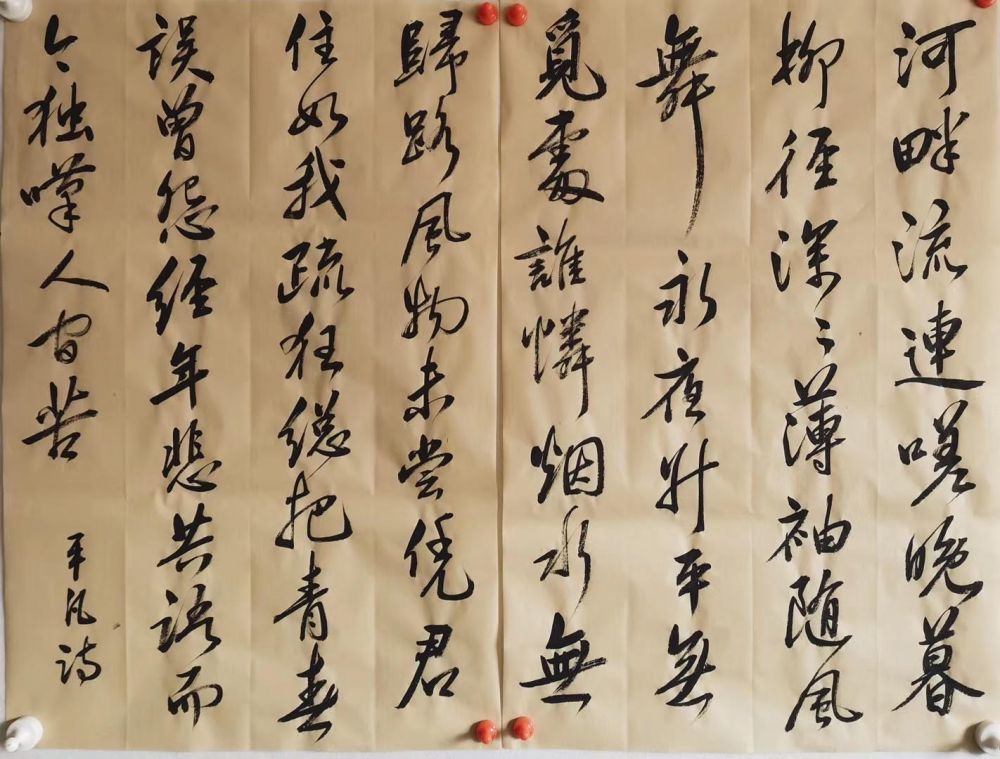 河畔流連嗟晚暮
柳徑深〻薄袖随風
舞永夜升平無
覓處誰憐烟水無
歸路風物未嘗凭君
住如我疏狂總把青春
誤曾怨經年悲共語而
今独嘆人间苦
平凡詩